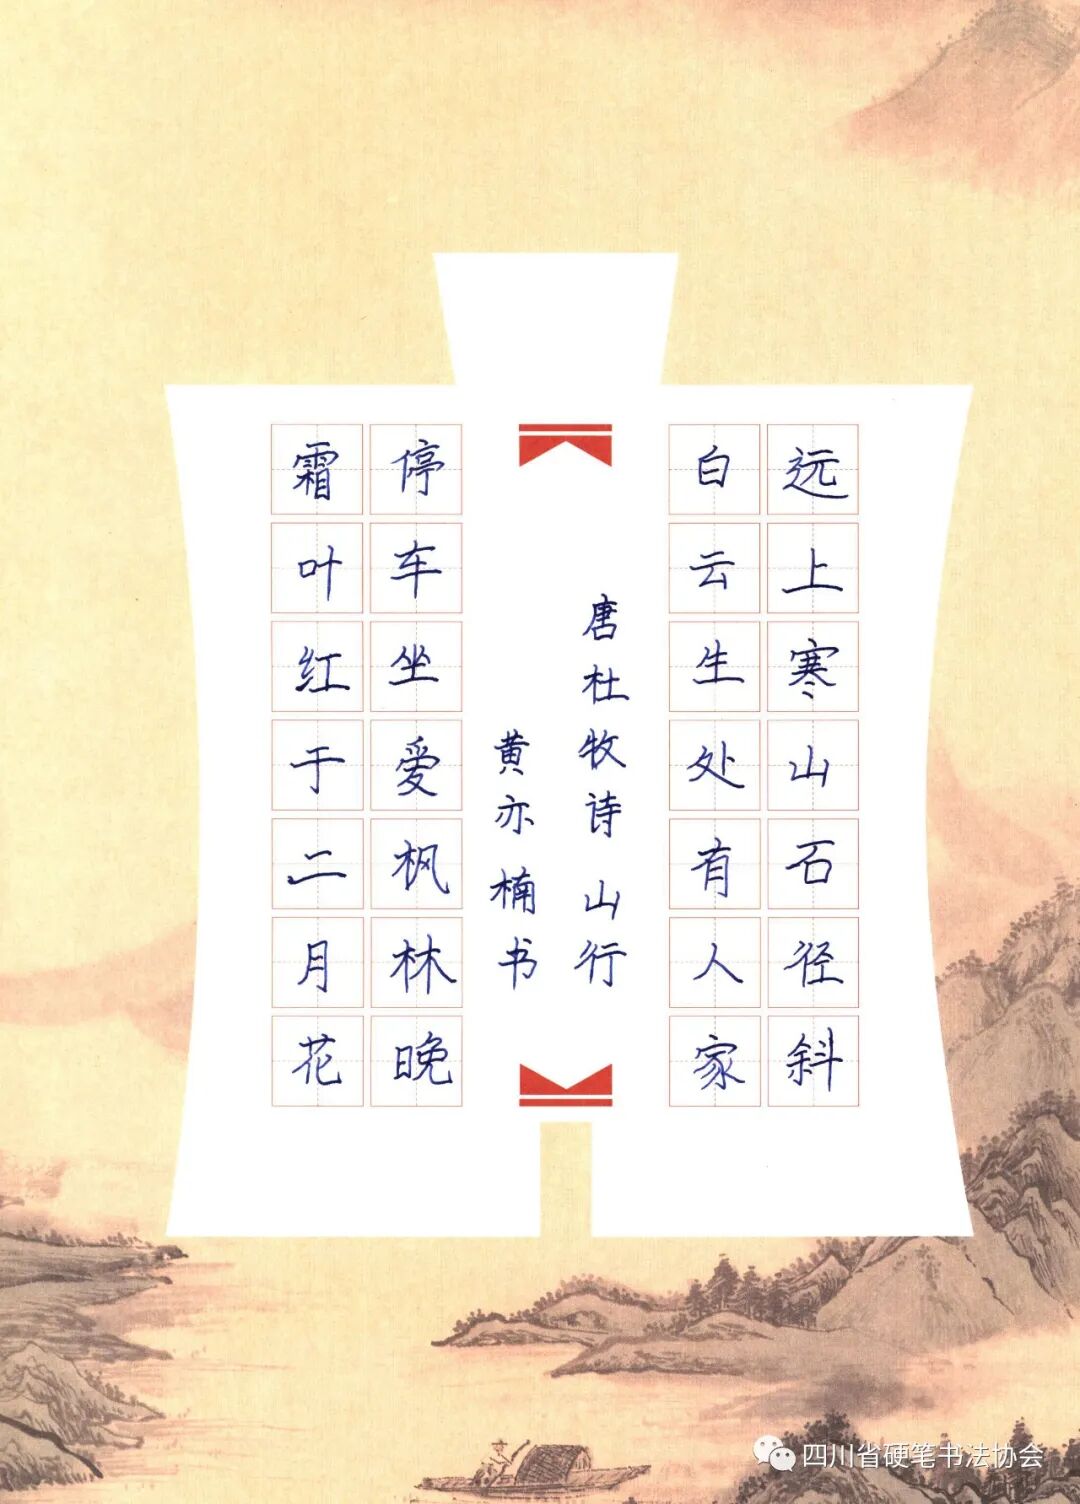 远上寒山石径斜
白云生处有人家
唐杜牧诗 山行
黄亦楠书
停车坐爱枫林晚
霜叶红于二月花
四川省硬笔书法协会